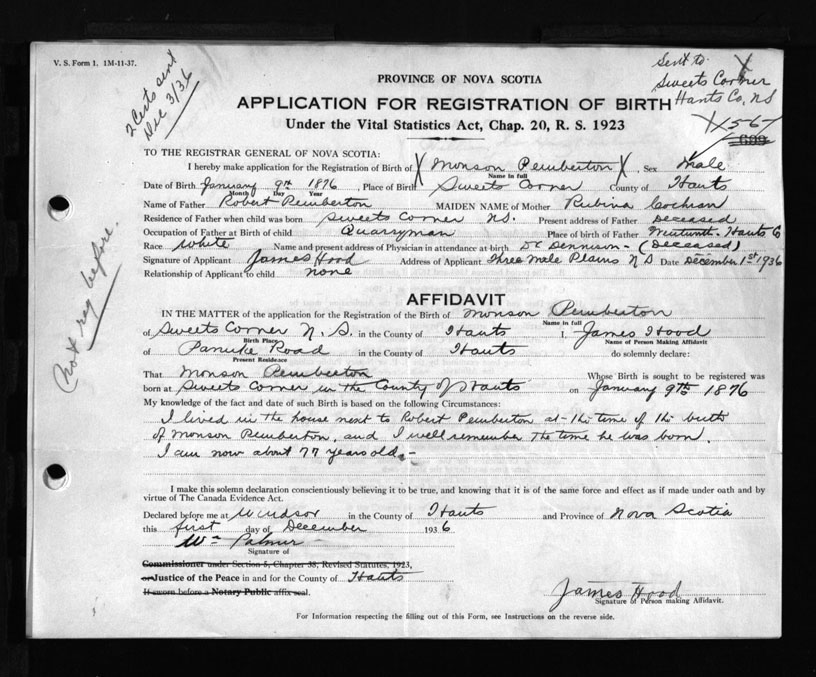 V. S. Form 1. 1M-11-37.
2 Certs sent
Dec 3/36
Sent to
Sweets Corner
Hants Co, NS
PROVINCE OF NOVA SCOTIA
APPLICATION FOR REGISTRATION OF BIRTH
Under the Vital Statistics Act, Chap. 20, R. S. 1923
TO THE REGISTRAR GENERAL OF NOVA SCOTIA:
I hereby make application for the Registration of Birth of Monson Pemberton, Sex Male
Name in full
Date of Birth January 9th 1876, Place of Birth Sweets Corner County of Hants
Month Day Year
Name of Father Robert Pemberton MAIDEN NAME of Mother Rubina Cochran
Residence of Father when child was born Sweets Corner NS. Present address of Father Deceased
Occupation of Father at Birth of child Quarryman Place of birth of Father Hants Co
Race White Name and present address of Physician in attendance at birth Dr Dennison - (Deceased)
Signature of Applicant James Hood Address of Applicant Three Mile Plains N S Date December 1st 1936
Relationship of Applicant to child none
(not reg before.
AFFIDAVIT
IN THE MATTER of the application for the Registration of the Birth of Monson Pemberton
Name in full
of Sweets Corner N. S. in the County of Hants I, James Hood
Birth Place Name of Person Making Affidavit
of Panuke Road in the County of Hants do solemnly declare:
Present Residence
That Monson Pemberton Whose Birth is sought to be registered was
born at Sweets Corner in the County of Hants on January 9th 1876
My knowledge of the fact and date of such Birth is based on the following Circumstances:
I lived in the house next to Robert Pemberton at the time of the birth
of Monson Pemberton, and I well remember the time he was born.
I am now about 77 years old -
I make this solemn declaration conscientiously believing it to be true, and knowing that it is of the same force and effect as if made under oath and by
virtue of The Canada Evidence Act.
Declared before me at Windsor in the County of Hants and Province of Nova Scotia
this first day of December 1936
Wm Palmer
Signature of
Commissioner under Section 5, Chapter 38, Revised Statutes, 1923,
or Justice of the Peace in and for the County of Hants
If sworn before a Notary Public affix seal.
James Hood
Signature of Person making Affidavit.
For Information respecting the filling out of this Form, see Instructions on the reverse side.